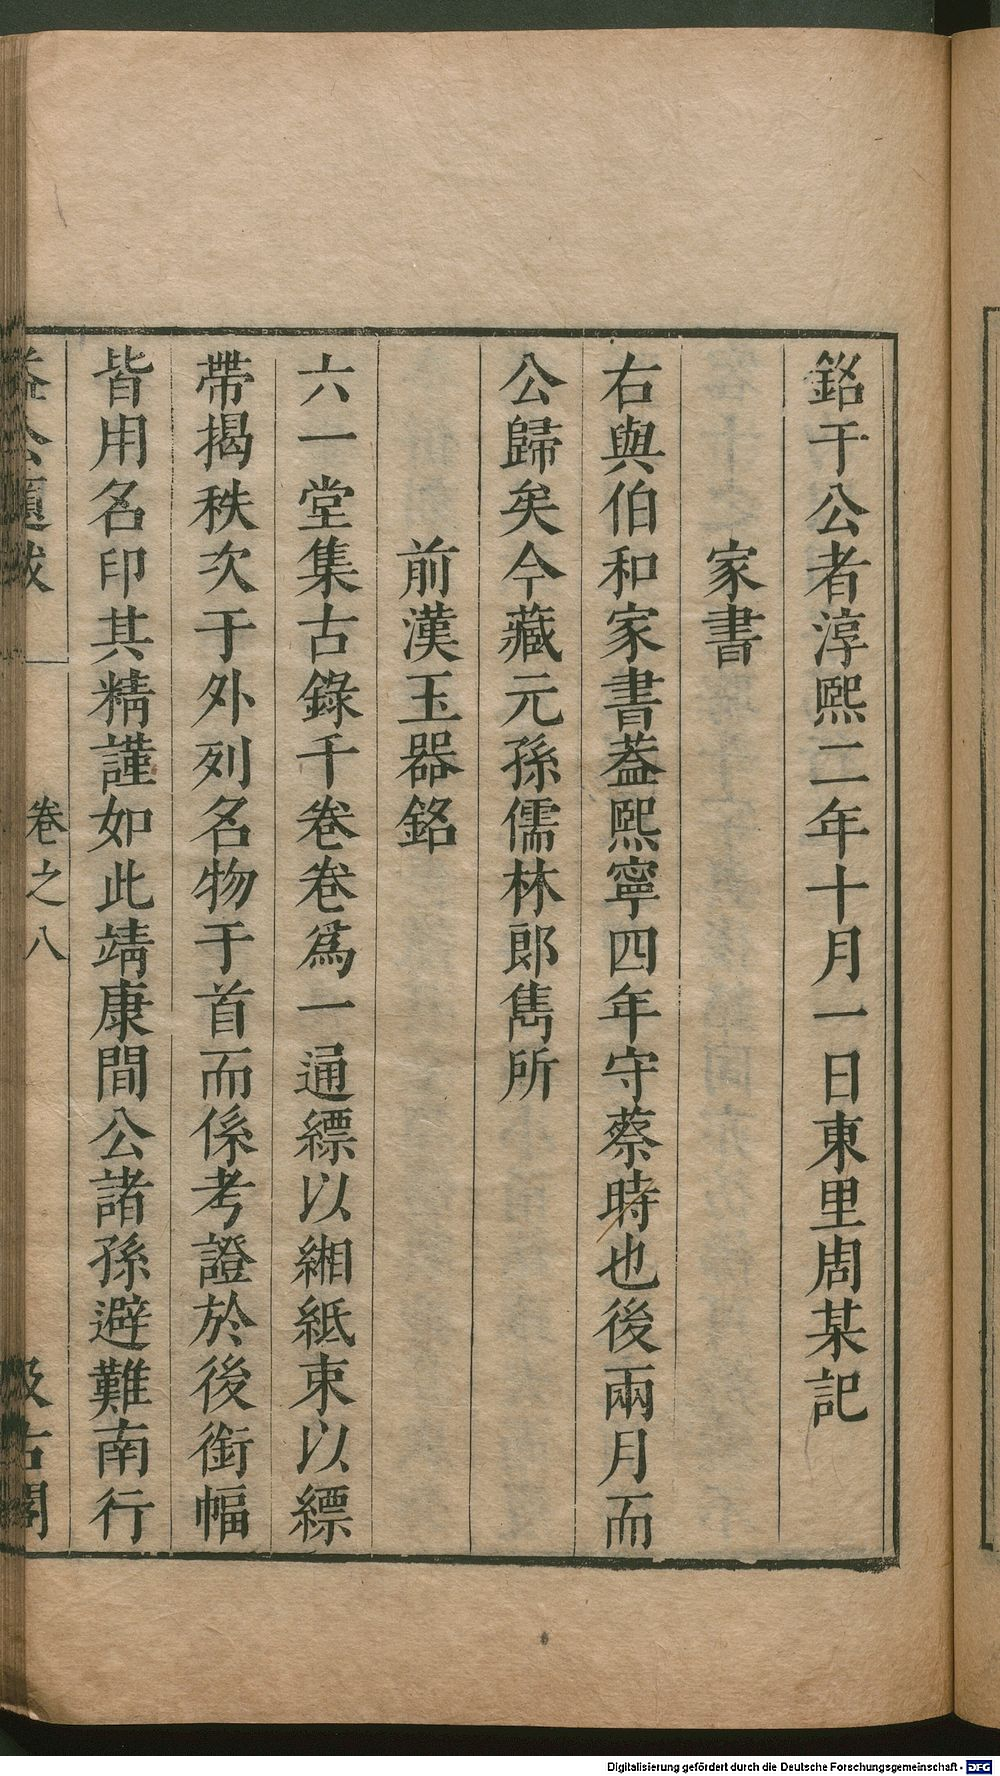 銘于公者淳熙二年十月一日東里周某記
家書
右與伯和家書葢熙寧四年守蔡時也後兩月而
公歸矣今藏元孫儒林郎雋所
前漢玉器銘
六一堂集古錄千卷卷爲一通縹以緗紙束以縹
帶揭秩次于外列名物于首而係考證於後銜幅
皆用名印其精謹如此靖康間公諸孫避難南行
益公題跋
卷之八
汲古閣
Digitalisierung gefördert durch die Deutsche Forschungsgemeinschaft - DFG